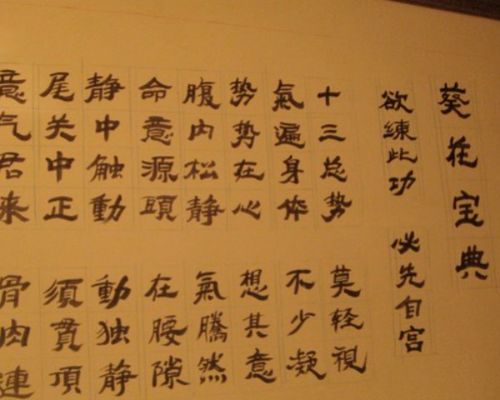 葵花宝典
欲練此功 必先自宫
十三总势 莫轻視
氣遍身体 不少凝
势势在心 想其意
腹内松静 氣騰然
命意源頭 在腰隙
静中触動 動独静
尾关中正 須貫頂
意气君来 骨肉連